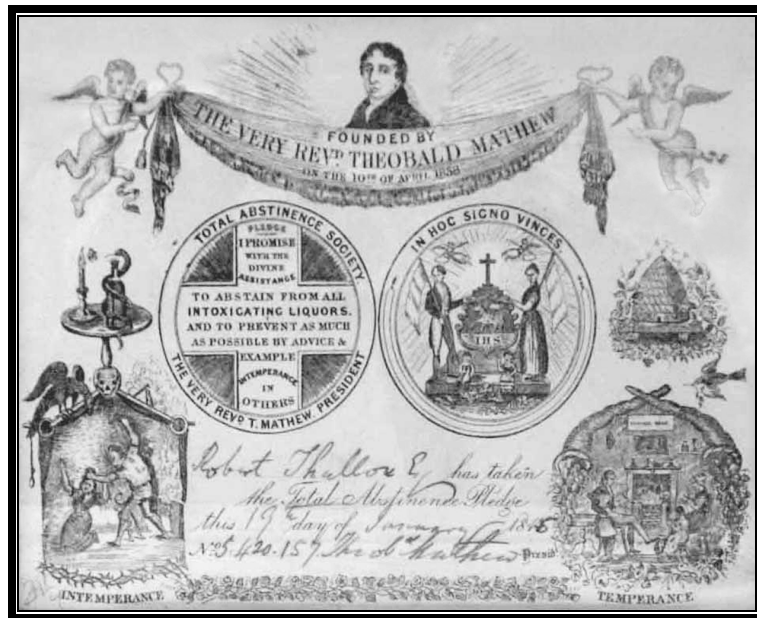 FOUNDED BY
THE VERY REVD. THEOBALD MATHEW
ON THE 10TH OF APRIL 1838
TOTAL ABSTINENCE SOCIETY
PLEDGE
I PROMISE
WITH THE
DIVINE
ASSISTANCE
TO ABSTAIN FROM ALL
INTOXICATING LIQUORS.
AND TO PREVENT AS MUCH
AS POSSIBLE BY ADVICE &
EXAMPLE
INTEMPERANCE
IN
OTHERS
THE VERY REVD. T. MATHEW, PRESIDENT
IN HOC SIGNO VINCES
IHS
Robert Thallon Esq has taken
the Total Abstinence Pledge
this 19th day of January 1845
No 5.420.157 Theobd Mathew Presid
INTEMPERANCE
TEMPERANCE